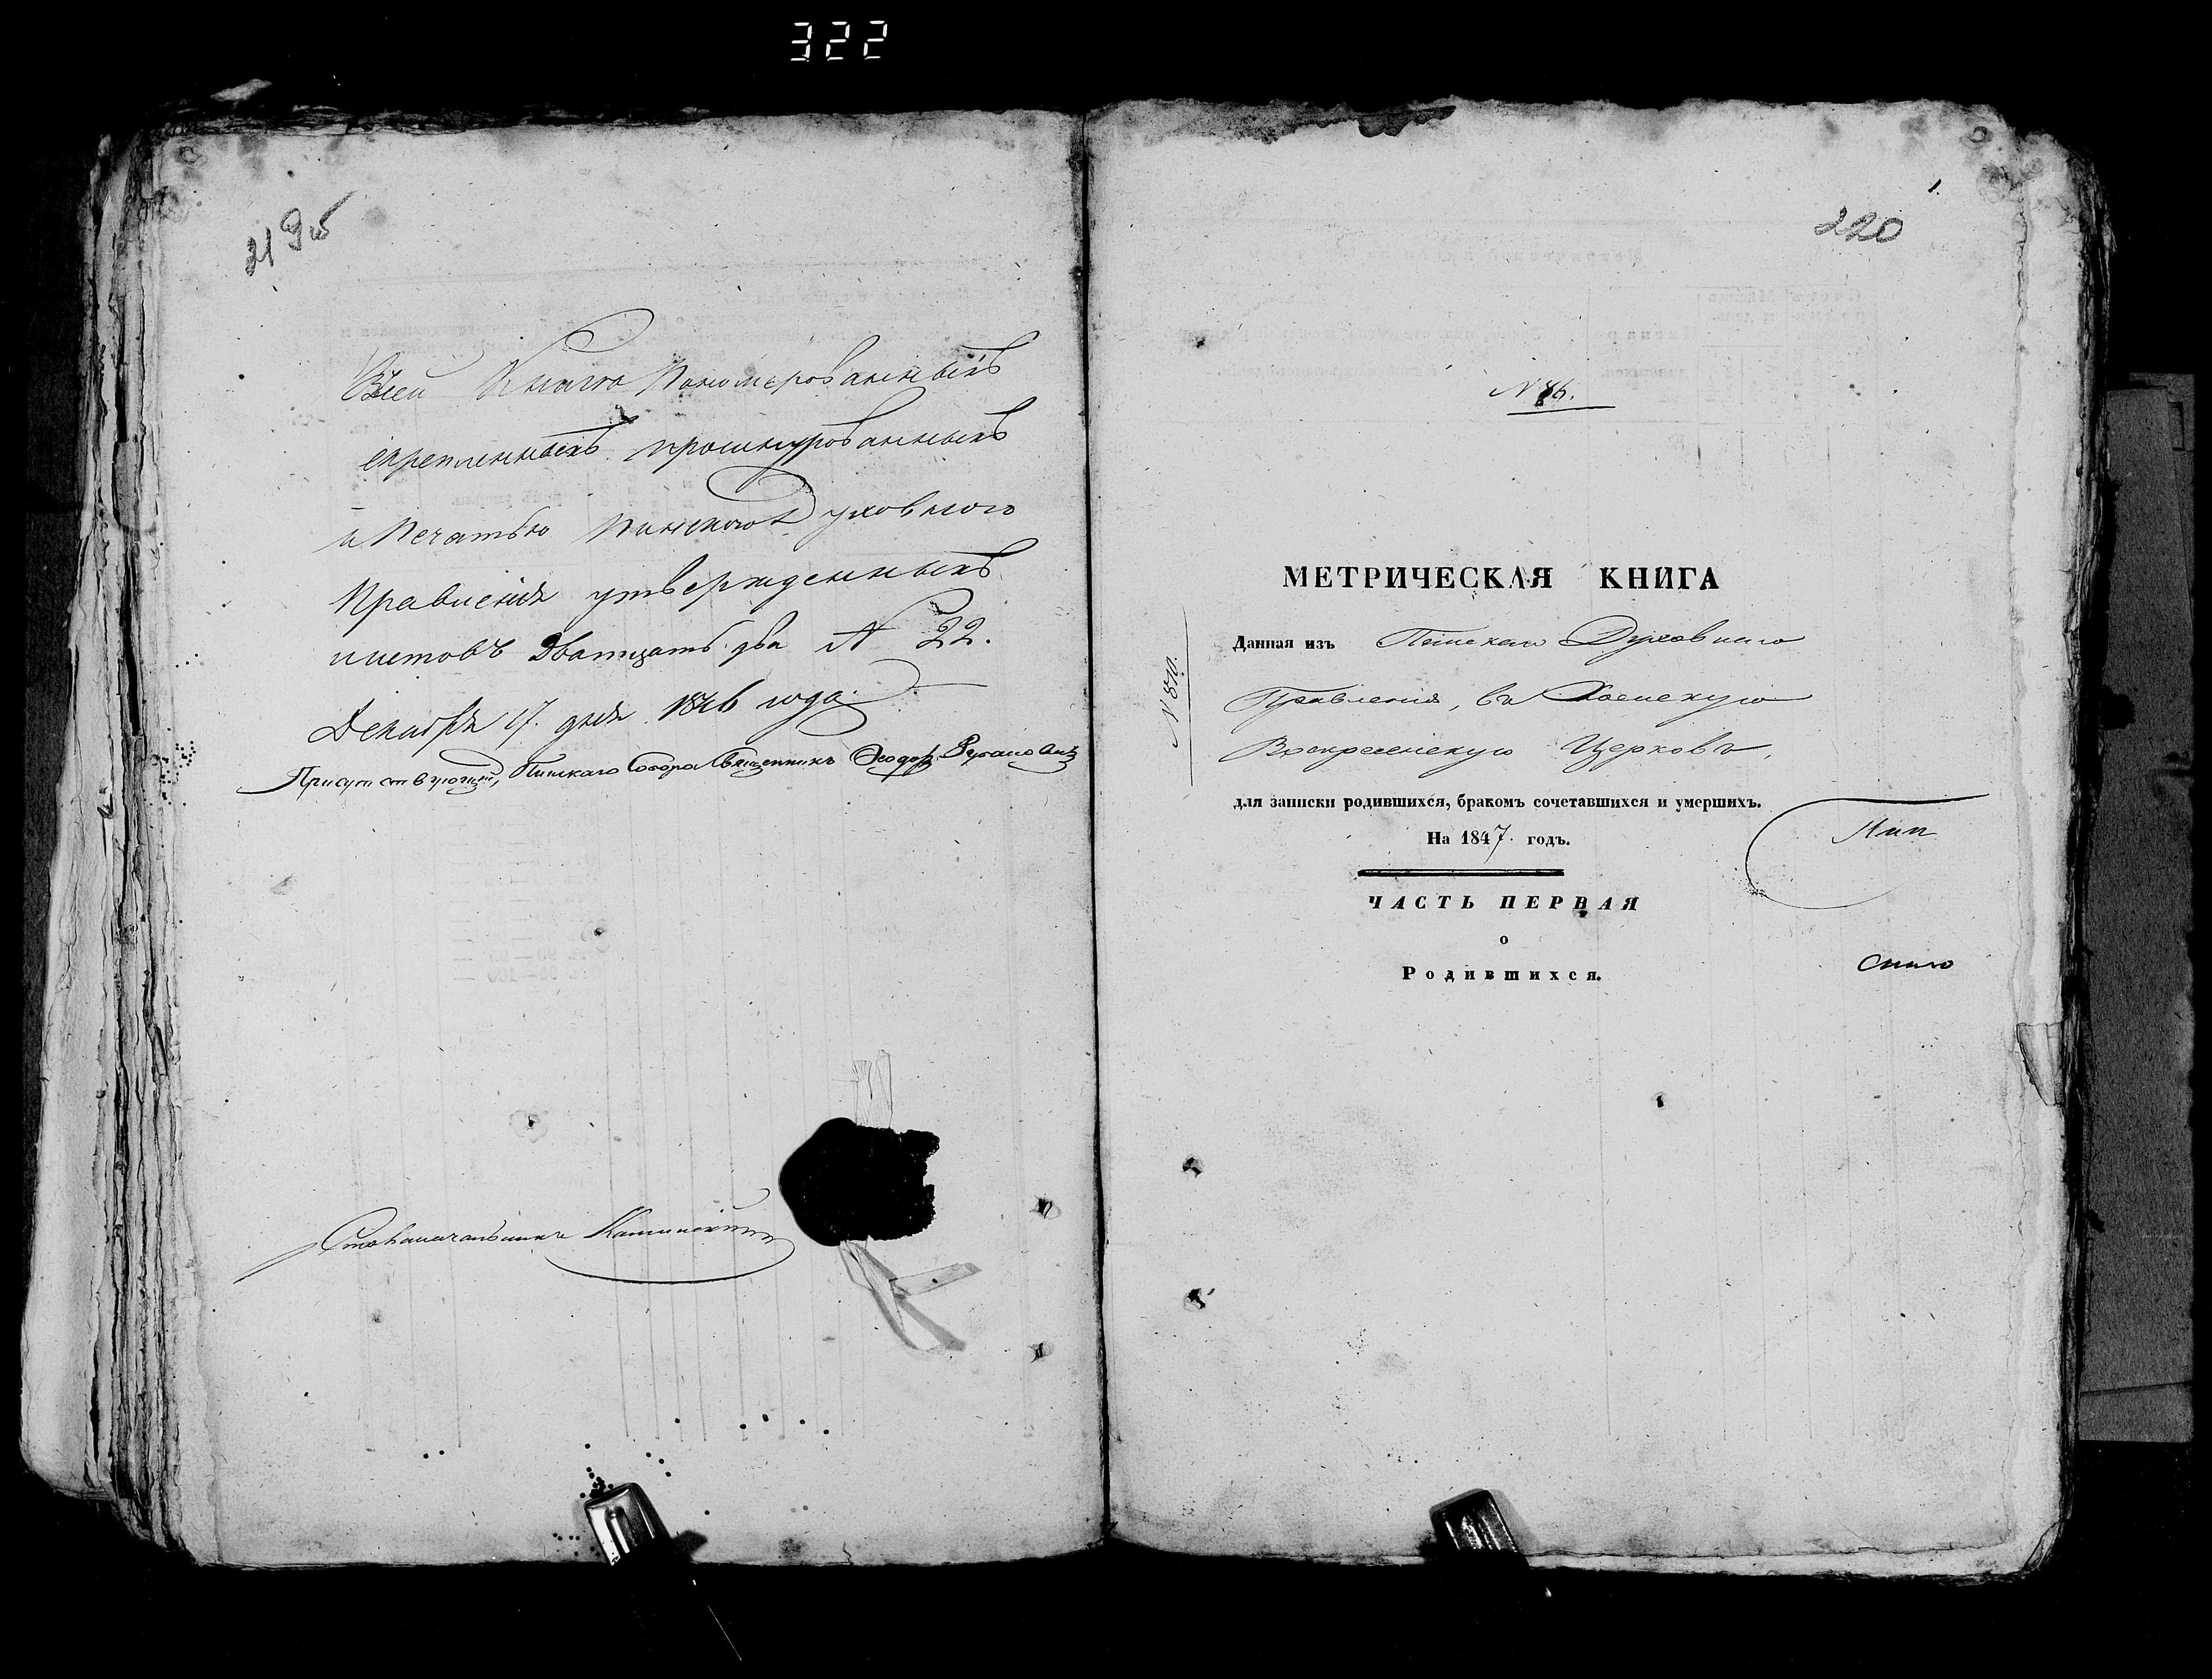 322
219об
Всей Книге Пономерованныхъ
скрепленныхъ прошнурованныхъ
и Печатью Пинского Духовного
Правления утвержденныхъ
листовъ Дватцать два № 22.
Декабря 17. дня 1846 года.
Присутствующий, Пинскаго Собора Священникъ Феодор
Столоначальникъ Каминский
1.
220
№ 86.
МЕТРИЧЕСКАЯ КНИГА
Данная изъ Пинскаго Духовнаго
Правления, въ Хоенскую
Воскресенскую Церковь,
№ 870.
для записки родившихся, бракомъ сочетавшихся и умершихъ.
На 1847 годъ.
ЧАСТЬ ПЕРВАЯ
о
Родившихся.